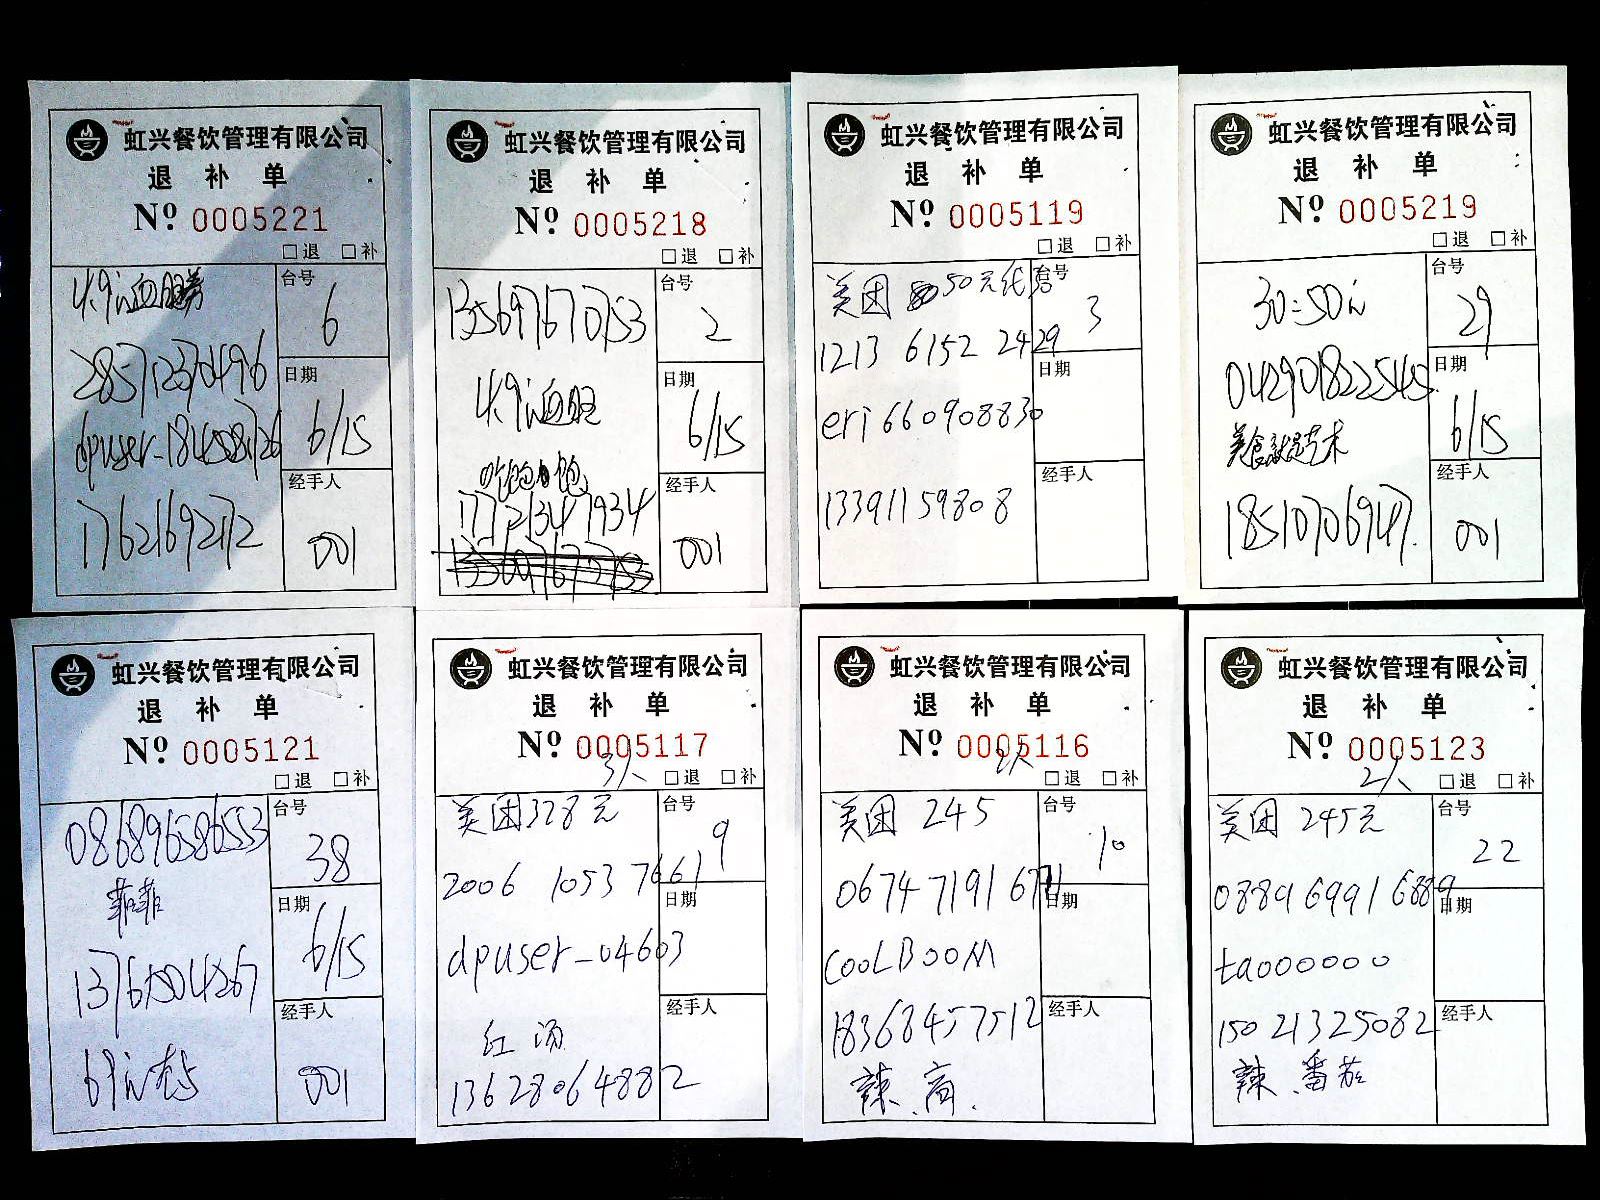 虹兴餐饮管理有限公司
退 补 单
Nº 0005221
□退 □补
台号
6
285712370496
日期
6/15
dpuser-18458126
经手人
17621692172
001
虹兴餐饮管理有限公司
退 补 单
Nº 0005218
□退 □补
台号
2
日期
6/15
17721347934
经手人
001
虹兴餐饮管理有限公司
退 补 单
Nº 0005119
□退 □补
美团 50元代
台号
3
1213 6152 2429
日期
eri660908830
经手人
13391159808
虹兴餐饮管理有限公司
退 补 单
Nº 0005219
□退 □补
30=50元
台号
29
042901822545
日期
6/15
美食就是艺术
经手人
18510706947
001
虹兴餐饮管理有限公司
退 补 单
Nº 0005121
□退 □补
086896586553
台号
38
菲菲
日期
6/15
经手人
001
虹兴餐饮管理有限公司
退 补 单
Nº 0005117
3人 □退 □补
美团328元
台号
9
2006 1053 7661
日期
dpuser-04603
经手人
红汤
13628064882
虹兴餐饮管理有限公司
退 补 单
Nº 0005116
2人 □退 □补
美团 245
台号
10
0674 7191 6711
日期
COOLBOOM
经手人
18368457512
辣.
虹兴餐饮管理有限公司
退 补 单
Nº 0005123
2人 □退 □补
美团 245元
台号
22
0889 6991 6889
日期
tao00000
经手人
15021325082
辣.番茄